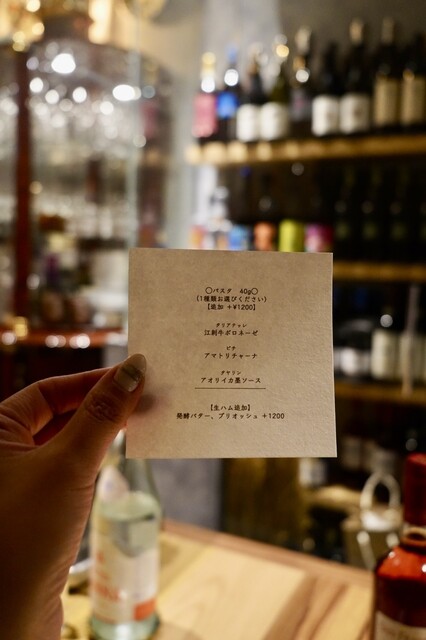 〇パスタ　40g〇
(1種類お選びください)
【追加 +¥1200】
タリアテレ
江刺牛ボロネーゼ
ピチ
アマトリチャーナ
タヤリン
アオリイカ墨ソース
【生ハム追加】
発酵バター、ブリオッシュ +1200